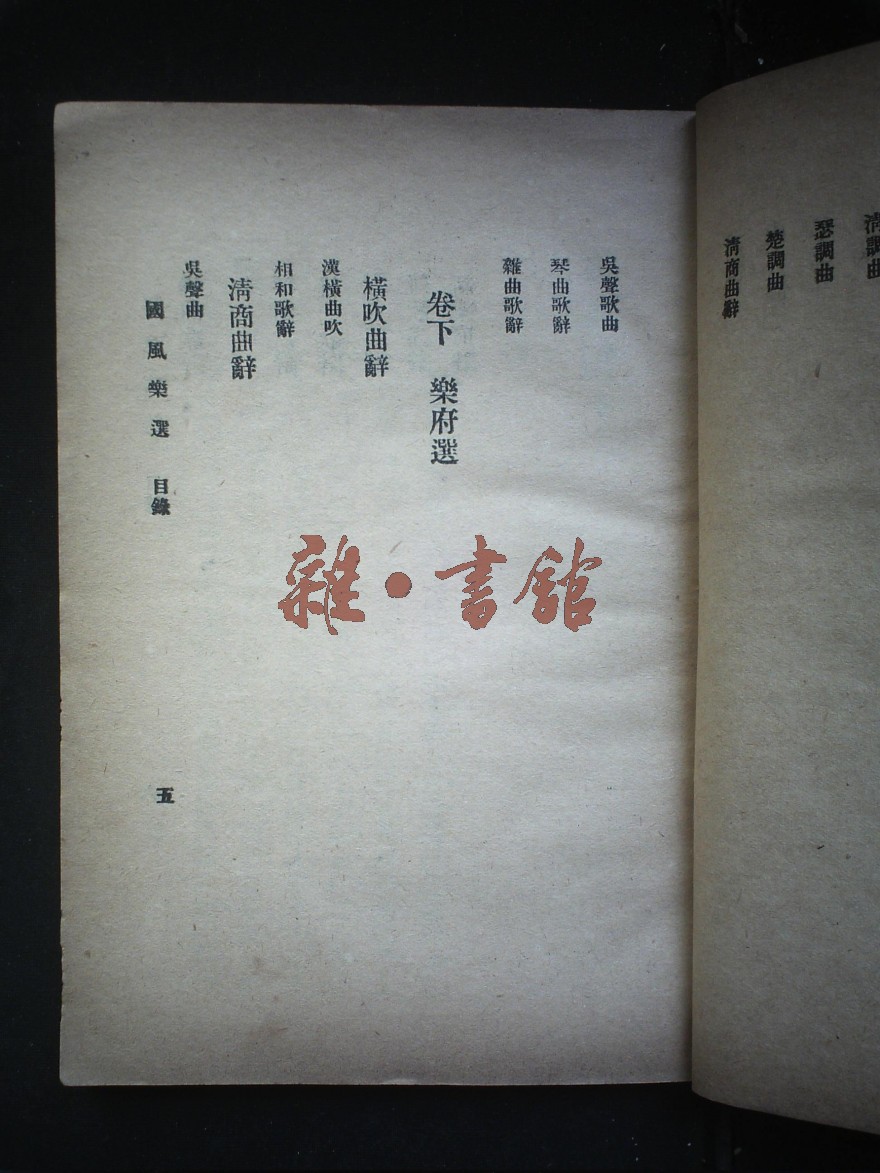 清調曲
瑟調曲
楚調曲
清商曲辭
吳聲歌曲
琴曲歌辭
雜曲歌辭
卷下 樂府選
橫吹曲辭
漢橫曲吹
相和歌辭
清商曲辭
吳聲曲
國風樂選 目錄 五
雜·書館